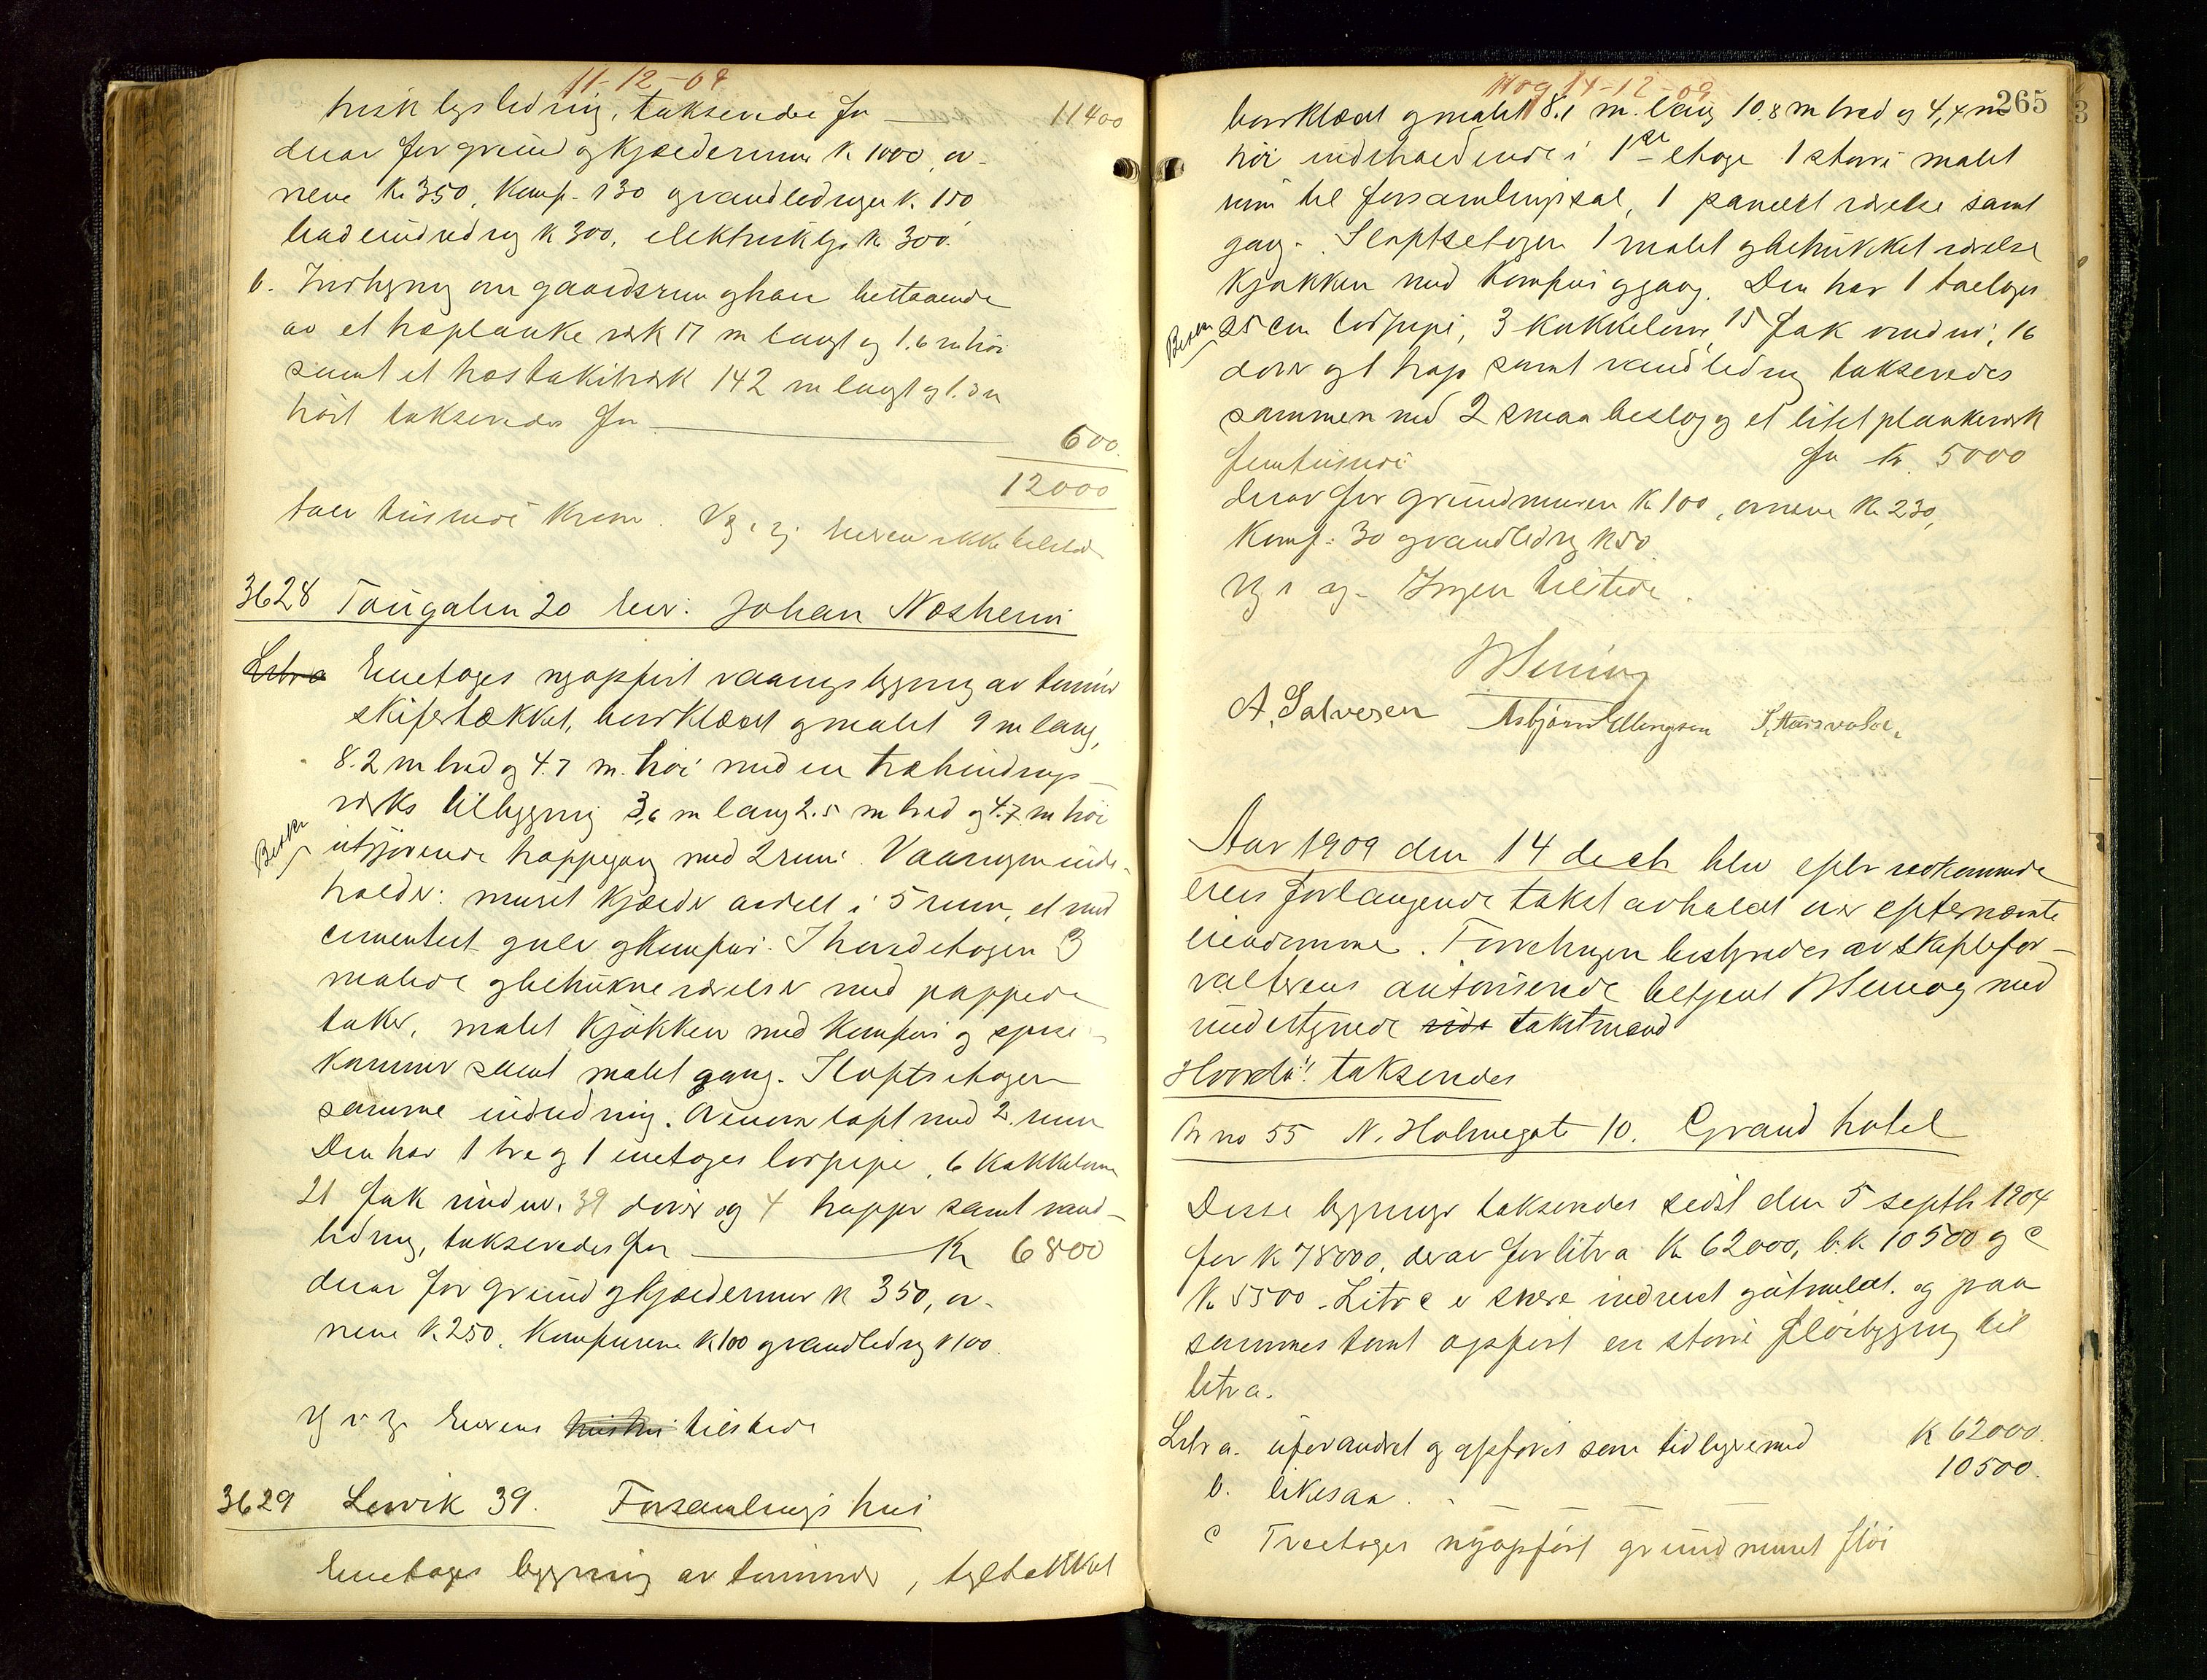 11-12-09
trisk lysledning, takseredes for 11400
derav for grund og kjeldermur k 1000, ov-
nene kr 350, komf. 130 og vandledninger k. 150
badeindredning k 300, elektrisk lys kr 300.
b. Indhegning om gaardsrum og have bestaaende
av et træplankeværk 17 m langt og 1.6 m høi
samt et træstakitværk 142 m langt og 1.3 m
høit takseredes for 600.
12000
tolv tusinde kroner. Eieren ikke tilstede
3628 Tougaten 20 eier: Johan Nøsheim
Litr a Enetages nyopført vaaningsbygning av tømmer
skifertækket, bordklædt og malet 9 m lang,
8.2 m bred og 4.7 m. høi med en træbindings-
verks tilbygning 3,6 m lang 2.5 m bred og 4.7 m høi
Besk
utgjørende trappegang med 2 rum. Vaaningen inde-
holder: muret kjelder avdelt i 5 rum, et med
cementert gulv og komfur. I hovedetagen 3
malede og betrukne værelser med pappede
taker, malet kjøkken med komfur og spise-
kammer samt malet gang. I loftsetagen
samme indredning. Øverste loft med 2 rum
Den har 1 tre og 1 enetages lodpipe, 6 kakkelovne
21 fak vinduer, 39 dører og 4 trapper samt vand-
ledning, takseredes for Kr 6800
derav for grund og kjeldermur k 350, ov-
nene k. 250. Komfurene k 100 og vandledning k 100.
Eierens tilstede
3629 Lervik 39. Forsamlings hus
Enetages bygning av tømmer, tegltækket
265
14-12-09
bordklædt og malet 8.1 m. lang 10.8 m bred og 4,4 m
høi indeholdende i 1ste etage 1 større malet
rum til forsamlingssal, 1 panelet værelse samt
gang. I loftsetagen 1 malet og betrukket værelse
kjøkken med komfur og gang. Den har 1 toetages
25 cm lodpipe, 3 kakkelovne, 15 fak vinduer, 16
dører og 1 trap samt vandledning takseredes
sammen med 2 smaa beslag og et litet plankeværk
femtusinde for kr. 5000
derav for grundmuren k 100, ovnene kr 230,
Komf. 30 og vandledning k 50.
Ingen tilstede.
A. Salvesen Asbjørn Ellingsen
Aar 1909 den 14 decb blev efter vedkommende
eieres forlangende takst avholdt over efternævnte
eiendomme. Forretningen bestyredes av skiftefor-
valterens autoriserede betjent med
undertegnede vids takstmænd
Hvorda: takseredes
Br no 55 N. Holmegate 10. Grand hotel
Disse bygninger takseredes sidst den 5 septb 1904
for k 78000, derav for litr a k 62000, b. k 10500 og c
k 5500. Litr c er senere nedrevet og utmeldt. og paa
sammes tomt opført en større fløibygning til
litr a.
Litr a. uforandret og opføres som tidligere med k 62000.
b. likesaa 10500.
c Treetages nyopført grundmuret fløi